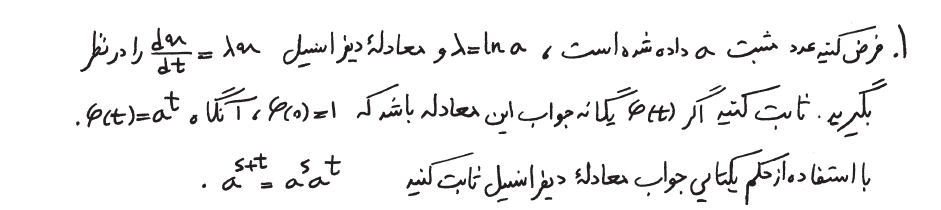 ۱. فرض کنید عدد مثبت a داده شده است ، λ=ln a و معادلهٔ دیفرانسیل dx/dt = λx را در نظر
بگیرید. ثابت کنید اگر φ(t) یگانه جواب این معادله باشد که φ(0)=1 ، آنگاه φ(t)=a^t .
با استفاده از حکم یکتایی جواب معادلهٔ دیفرانسیل ثابت کنید a^{s+t}=a^s a^t .